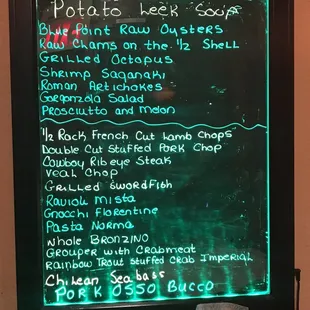 Potato Leek Soup
Blue Point Raw Oysters
Raw Clams on the 1/2 Shell
Grilled Octopus
Shrimp Saganaki
Roman Artichokes
Gorgonzola Salad
Prosciutto and Melon
1/2 Rack French Cut Lamb Chops
Double Cut Stuffed Pork Chop
Cowboy Ribeye Steak
Veal Chop
Grilled Swordfish
Ravioli Mista
Gnocchi Florentine
Pasta Norma
Whole Bronzino
Grouper with Crabmeat
Rainbow Trout Stuffed Crab Imperial
Chilean Seabass
Pork Osso Bucco